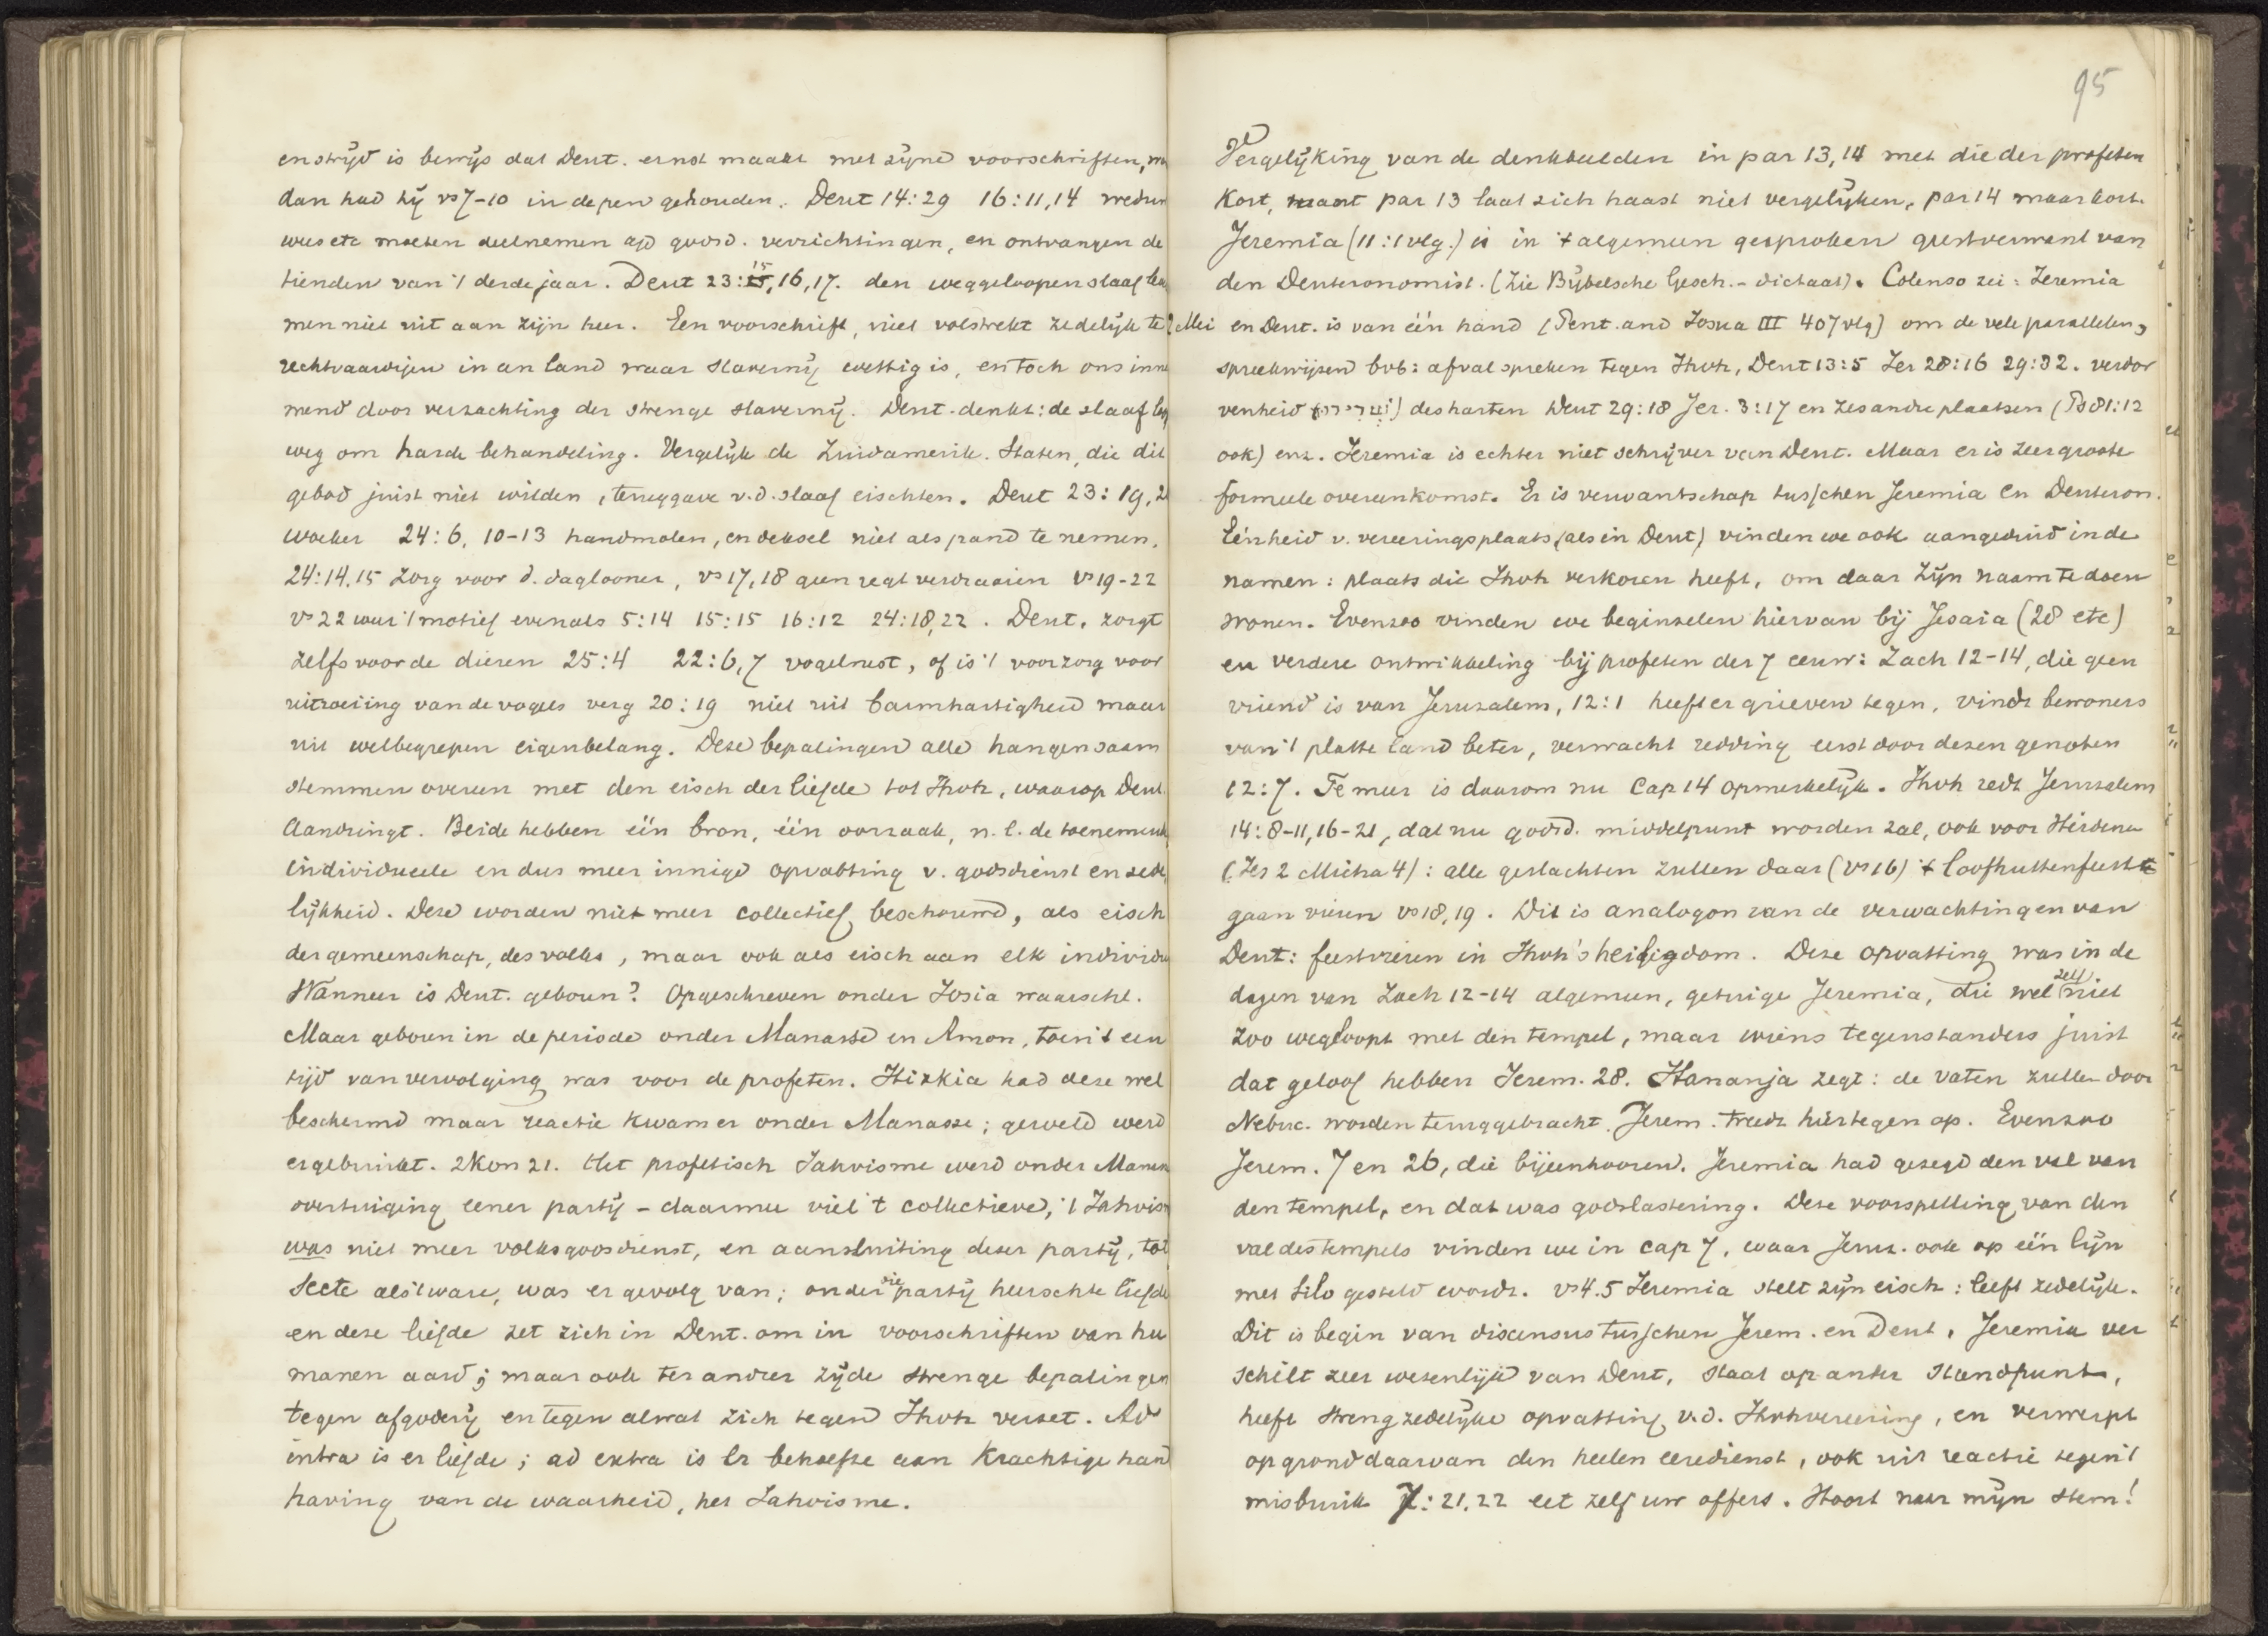 en strijd is bewijs dat Deut. ernst maakt met zijne voorschriften,
dan had hij vs 7-10 in de pen gehouden. Deut 14:29 16:11,14
wees etc moeten deelnemen a/d godsd. verrichtingen, en ontvangen de
tienden van 't derde jaar. Deut 23: 15, 16, 17. den weggeloopen slaaf
men niet uit aan zijn heer. Een voorschrift, niet volstrekt zedelijk te
rechtvaardigen in een land waar slavernij wettig is, en toch ons inne
mend door verzachting der strenge slavernij. Deut. denkt: de slaaf
weg om harde behandeling. Vergelijk de Zuidamerik. Staten, die dit
gebod juist niet wilden, teruggave v.d. slaaf eischten. Deut 23:19,2
woeker 24:6, 10-13 handmolen, en deksel niet als pand te nemen.
24:14,15 zorg voor d. daglooner, vs 17,18 geen regt verdraaien vs 19-22
vs 22 waar 't motief evenals 5:14 15:15 16:12 24:18,22. Deut. zorgt
zelfs voor de dieren 25:4 22:6,7 vogelnest, of is 't voorzorg voor
uitroeiing van de vogels verg 20:19 niet uit barmhartigheid maar
uit welbegrepen eigenbelang. Deze bepalingen alle hangen saam
stemmen overeen met den eisch der liefde tot Jhvh, waarop Deut.
aandringt. Beide hebben één bron, één oorzaak, n.l. de toenemende
individueele en dus meer innige opvatting v. godsdienst en zede
lijkheid. Deze worden niet meer collectief beschouwd, als eisch
der gemeenschap, des volks, maar ook als eisch aan elk individu
Wanneer is Deut. geboren? Opgeschreven onder Josia waarschl.
Maar geboren in de periode onder Manasse en Amon, toen 't een
tijd van vervolging was voor de profeten. Hizkia had deze wel
beschermd maar reactie kwam er onder Manasse; geweld werd
er gebruikt. 2 Kon 21. Het profetisch Jahvisme werd onder Manasse
overtuiging eener partij – daarmee viel 't collectieve, 't Jahvism
was niet meer volksgodsdienst, en aansluiting dezer partij, tot
secte als 't ware, was er gevolg van; onder die partij heerschte liefde
en deze liefde zet zich in Deut. om in voorschriften van hu
manen aard; maar ook ter andere zijde strenge bepalingen
tegen afgoderij en tegen alwat zich tegen Jhvh verzet. Ad
intra is er liefde; ad extra is er behoefte aan krachtige hand
having van de waarheid, het Jahvisme.
95
Vergelijking van de denkbeelden in par 13, 14 met die der profeten
Kort, want par 13 laat zich haast niet vergelijken, par 14 maar kort.
Jeremia (11:1 vlg.) is in 't algemeen gesproken geestverwant van
den Deuteronomist. (Zie Bijbelsche Gesch. - dictaat). Colenso zei: Jeremia
en Deut. is van één hand (Pent. and Josua III 407 vlg) om de vele parallelen,
spreekwijzen bvb: afval spreken tegen Jhvh, Deut 13:5 Jer 28:16 29:32. verdor
venheid des harten Deut 29:18 Jer. 3:17 en zes andre plaatsen (Ps 81:12
ook) enz. Jeremia is echter niet schrijver van Deut. Maar er is zeer groote
formeele overeenkomst. Er is verwantschap tusschen Jeremia en Deuteron.
Eénheid v. vereeringsplaats (als in Deut) vinden we ook aangeduid in de
namen: plaats die Jhvh verkoren heeft, om daar zijn naam te doen
wonen. Evenzoo vinden we beginselen hiervan bij Jesaia (28 etc)
en verdere ontwikkeling bij profeten der 7 eeuw: Zach 12-14, die geen
vriend is van Jeruzalem, 12:1 heeft er grieven tegen, vindt bewoners
van 't platte land beter, verwacht redding eerst door dezen genoten
12:7. Te meer is daarom nu Cap 14 opmerkelijk. Jhvh redt Jeruzalem
14:8-11, 16-21, dat nu godsd. middelpunt worden zal, ook voor Heidenen
(Jes 2 Micha 4): alle geslachten zullen daar (vs 16) 't loofhuttenfeest
gaan vieren vs 18,19. Dit is analogon van de verwachtingen van
Deut: feestvieren in Jhvh's heiligdom. Deze opvatting was in de
dagen van Zach 12-14 algemeen, getuige Jeremia, die wel zelf niet
zoo wegloopt met den tempel, maar wiens tegenstanders juist
dat geloof hebben Jerem. 28. Hananja zegt: de vaten zullen door
Nebuc. worden teruggebracht. Jerem. treedt hiertegen op. Evenzoo
Jerem. 7 en 26, die bijeenhooren. Jeremia had gezegd den val van
den tempel, en dat was godslastering. Deze voorspelling van den
val des tempels vinden we in cap 7, waar Jeruz. ook op één lijn
met Silo gesteld wordt. vs 4.5 Jeremia stelt zijn eisch: leeft zedelijk.
Dit is begin van discensus tusschen Jerem. en Deut. Jeremia ver
schilt zeer wezenlijk van Deut, staat op ander standpunt,
heeft streng zedelijke opvatting v.d. Jhvhvereering, en verwerpt
op grond daarvan den heelen eeredienst, ook uit reactie tegen 't
misbruik 7:21,22 eet zelf uw offers. Hoort naar mijn stem!